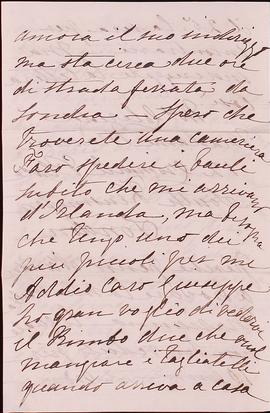 ancora il suo indirizzo
ma sta circa due ore
di strada ferrata da
Londra — Spero che
troverete una cameriera
Farò spedire i bauli
subito che mi arrivano
d'Irlanda, ma bisogna
che tengo uno dei
piu piccoli per me
Addio Caro Giuseppe
ho gran voglio di vedervi
il Bimbo dice che vuol
mangiare i Tagliatelli
quando arriva a casa